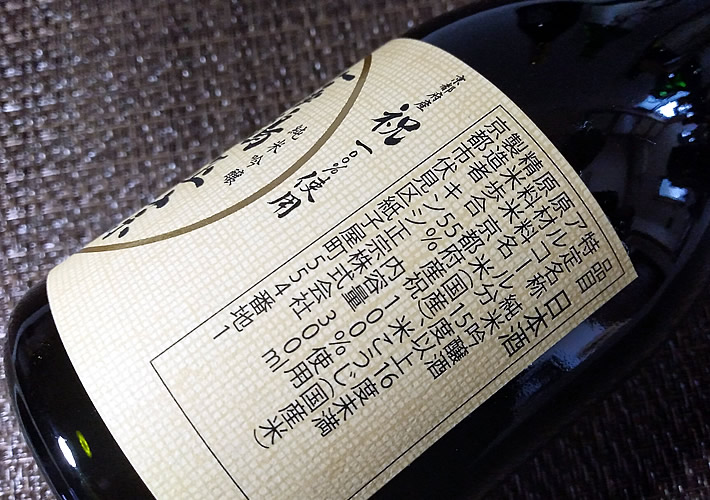 品目 日本酒
特定名称 純米吟醸酒
アルコール分 15度以上16度未満
原材料名 米(国産)米こうじ(国産米)
原料米 京都府産祝100%使用
精米歩合 55% 内容量 300ml
製造者 キンシ正宗株式会社
京都市伏見区紙子屋町554番地1
京都府産
祝
100%使用
純米吟醸